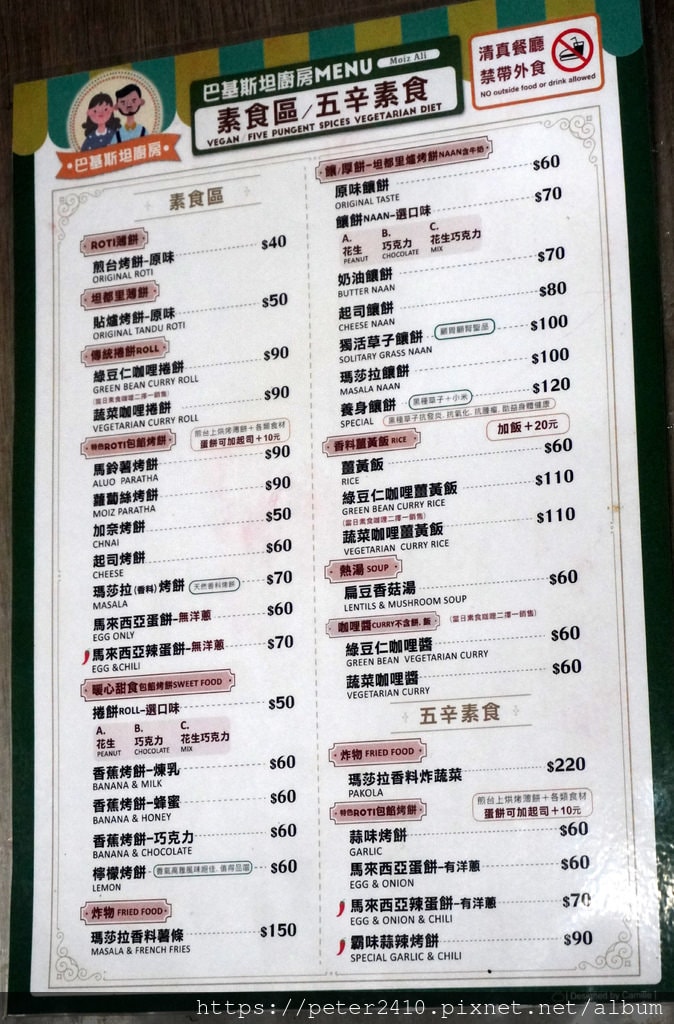 巴基斯坦廚房MENU Moiz Ali
素食區/五辛素食
VEGAN / FIVE PUNGENT SPICES VEGETARIAN DIET
清真餐廳
禁帶外食
NO outside food or drink allowed
巴基斯坦廚房
素食區
ROTI薄餅
煎台烤餅-原味 $40
ORIGINAL ROTI
坦都里薄餅
貼爐烤餅-原味 $50
ORIGINAL TANDU ROTI
傳統捲餅ROLL
綠豆仁咖哩捲餅 $90
GREEN BEAN CURRY ROLL
(當日素食咖哩二擇一銷售)
蔬菜咖哩捲餅 $90
VEGETARIAN CURRY ROLL
特色ROTI包餡烤餅
煎台上烘烤薄餅+各類食材
蛋餅可加起司+10元
馬鈴薯烤餅 $90
ALUO PARATHA
蘿蔔絲烤餅 $90
MOIZ PARATHA
加奈烤餅 $50
CHNAI
起司烤餅 $60
CHEESE
瑪莎拉(香料)烤餅 天然香料烤餅 $70
MASALA
馬來西亞蛋餅-無洋蔥 $60
EGG ONLY
馬來西亞辣蛋餅-無洋蔥 $70
EGG &CHILI
暖心甜食包餡烤餅SWEET FOOD
捲餅ROLL-選口味 $50
A. B. C.
花生 巧克力 花生巧克力
PEANUT CHOCOLATE MIX
香蕉烤餅-煉乳 $60
BANANA & MILK
香蕉烤餅-蜂蜜 $60
BANANA & HONEY
香蕉烤餅-巧克力 $60
BANANA & CHOCOLATE
檸檬烤餅 $60
LEMON
炸物 FRIED FOOD
瑪莎拉香料薯條 $150
MASALA & FRENCH FRIES
饢/厚餅-坦都里爐烤餅NAAN含牛奶
原味饢餅 $60
ORIGINAL TASTE
饢餅NAAN-選口味 $70
A. B. C.
花生 巧克力 花生巧克力
PEANUT CHOCOLATE MIX
奶油饢餅 $70
BUTTER NAAN
起司饢餅 $80
CHEESE NAAN
獨活草子饢餅 顧胃顧腎聖品 $100
SOLITARY GRASS NAAN
瑪莎拉饢餅 $100
MASALA NAAN
養身饢餅 黑種草子+小米 $120
SPECIAL 黑種草子抗發炎.抗氧化.抗腫瘤.助益身體健康
香料薑黃飯 RICE
加飯+20元
薑黃飯 $60
RICE
綠豆仁咖哩薑黃飯 $110
GREEN BEAN CURRY RICE
(當日素食咖哩二擇一銷售)
蔬菜咖哩薑黃飯 $110
VEGETARIAN CURRY RICE
熱湯 SOUP
扁豆香菇湯 $60
LENTILS & MUSHROOM SOUP
咖哩醬CURRY不含餅.飯 (當日素食咖哩二擇一銷售)
綠豆仁咖哩醬 $60
GREEN BEAN VEGETARIAN CURRY
蔬菜咖哩醬 $60
VEGETARIAN CURRY
五辛素食
炸物 FRIED FOOD
瑪莎拉香料炸蔬菜 $220
PAKOLA
特色ROTI包餡烤餅
煎台上烘烤薄餅+各類食材
蛋餅可加起司+10元
蒜味烤餅 $60
GARLIC
馬來西亞蛋餅-有洋蔥 $60
EGG & ONION
馬來西亞辣蛋餅-有洋蔥 $70
EGG & ONION & CHILI
霸味蒜辣烤餅 $90
SPECIAL GARLIC & CHILI
https://peter2410.pixnet.net/album